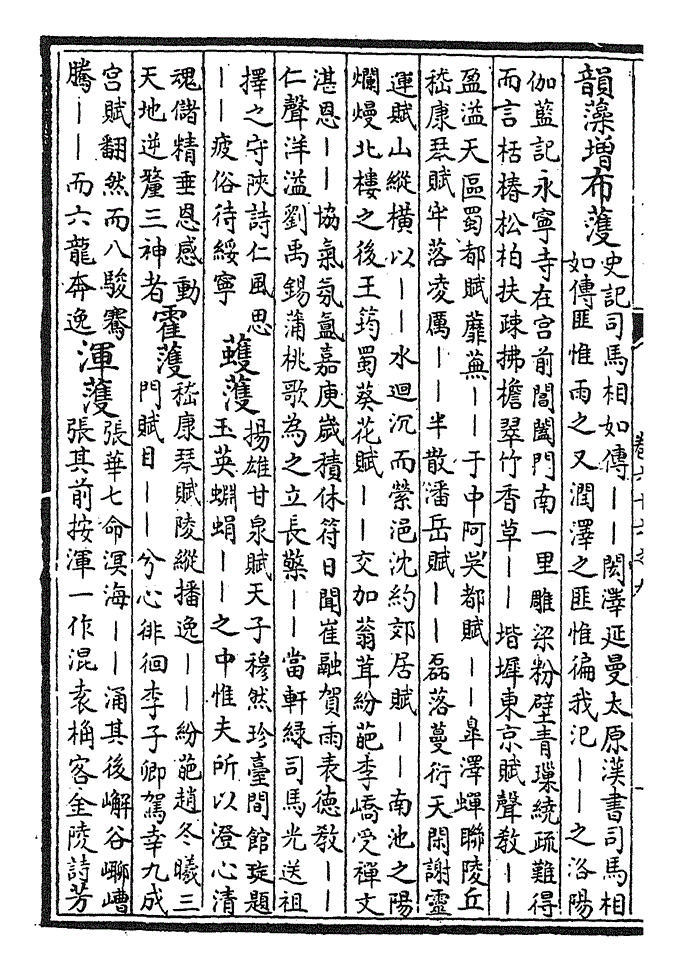 韻藻增布濩
史記司馬相如傳——閎澤延曼太原漢書司馬相
如傳匪惟雨之又潤澤之匪惟徧我氾——之洛陽
伽藍記永寧寺在宫前閶闔門南一里雕梁粉壁青璅繞疏難得
而言栝椿松柏扶疎拂檐翠竹香草——堦墀東京賦聲教——
盈溢天區蜀都賦蘼蕪——于中阿吳都賦——臯澤蟬聯陵丘
嵇康琴賦牢落凌厲——半散潘岳賦——磊落蔓衍天閑謝靈
運賦山縱横以——水迴沉而縈浥沈約郊居賦——南池之陽
爛熳北樓之後王筠蜀葵花賦——交加蓊茸紛葩李嶠受禪文
湛恩——協氣氛氲嘉庚嵗積休符日聞崔融賀雨表德敎——
仁聲洋溢劉禹錫蒲桃歌為之立長檠——當軒緑司馬光送祖
擇之守陜詩仁風思
——疲俗待綏寧
蠖濩
揚雄甘泉賦天子穆然珍臺間館琁題
玉英蜵蜎——之中惟夫所以澄心清
魂儲精垂恩感動
天地逆釐三神者
霍濩
嵇康琴賦陵縱播逸——紛葩趙冬曦三
門賦目——兮心徘徊李子卿駕幸九成
宫賦翻然而八駿騫
騰——而六龍奔逸
渾濩
張華七命溟海——涌其後嶰谷㟹嶆
張其前按渾一作混袁桷客金陵詩芳